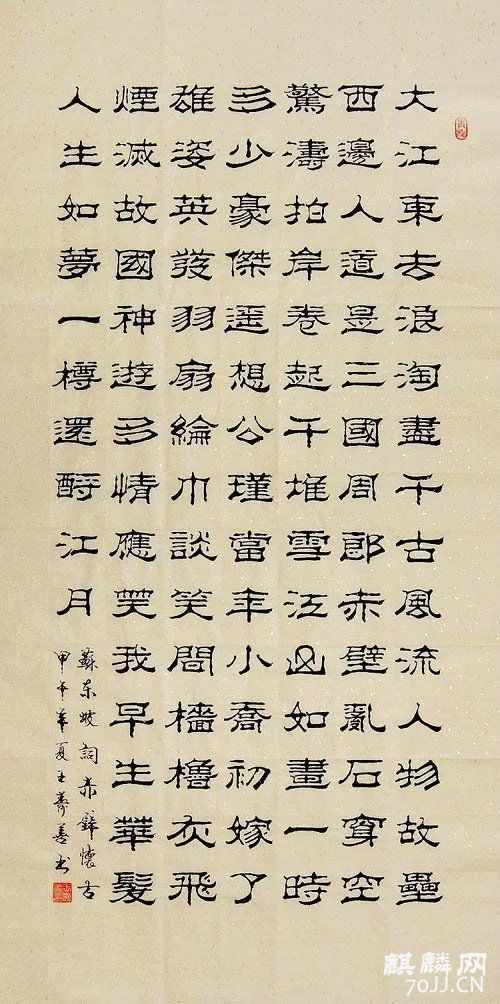 大江東去浪淘盡千古風流人物故壘
西邊人道是三國周郎赤壁亂石穿空
驚濤拍岸卷起千堆雪江山如畫一時
多少豪傑遥想公瑾當年小喬初嫁了
雄姿英發羽扇綸巾談笑間檣櫓灰飛
煙滅故國神遊多情應笑我早生華髮
人生如夢一樽還酹江月
蘇东坡詞赤壁懷古
甲午年夏王善书
麒麟网
70JJ.CN